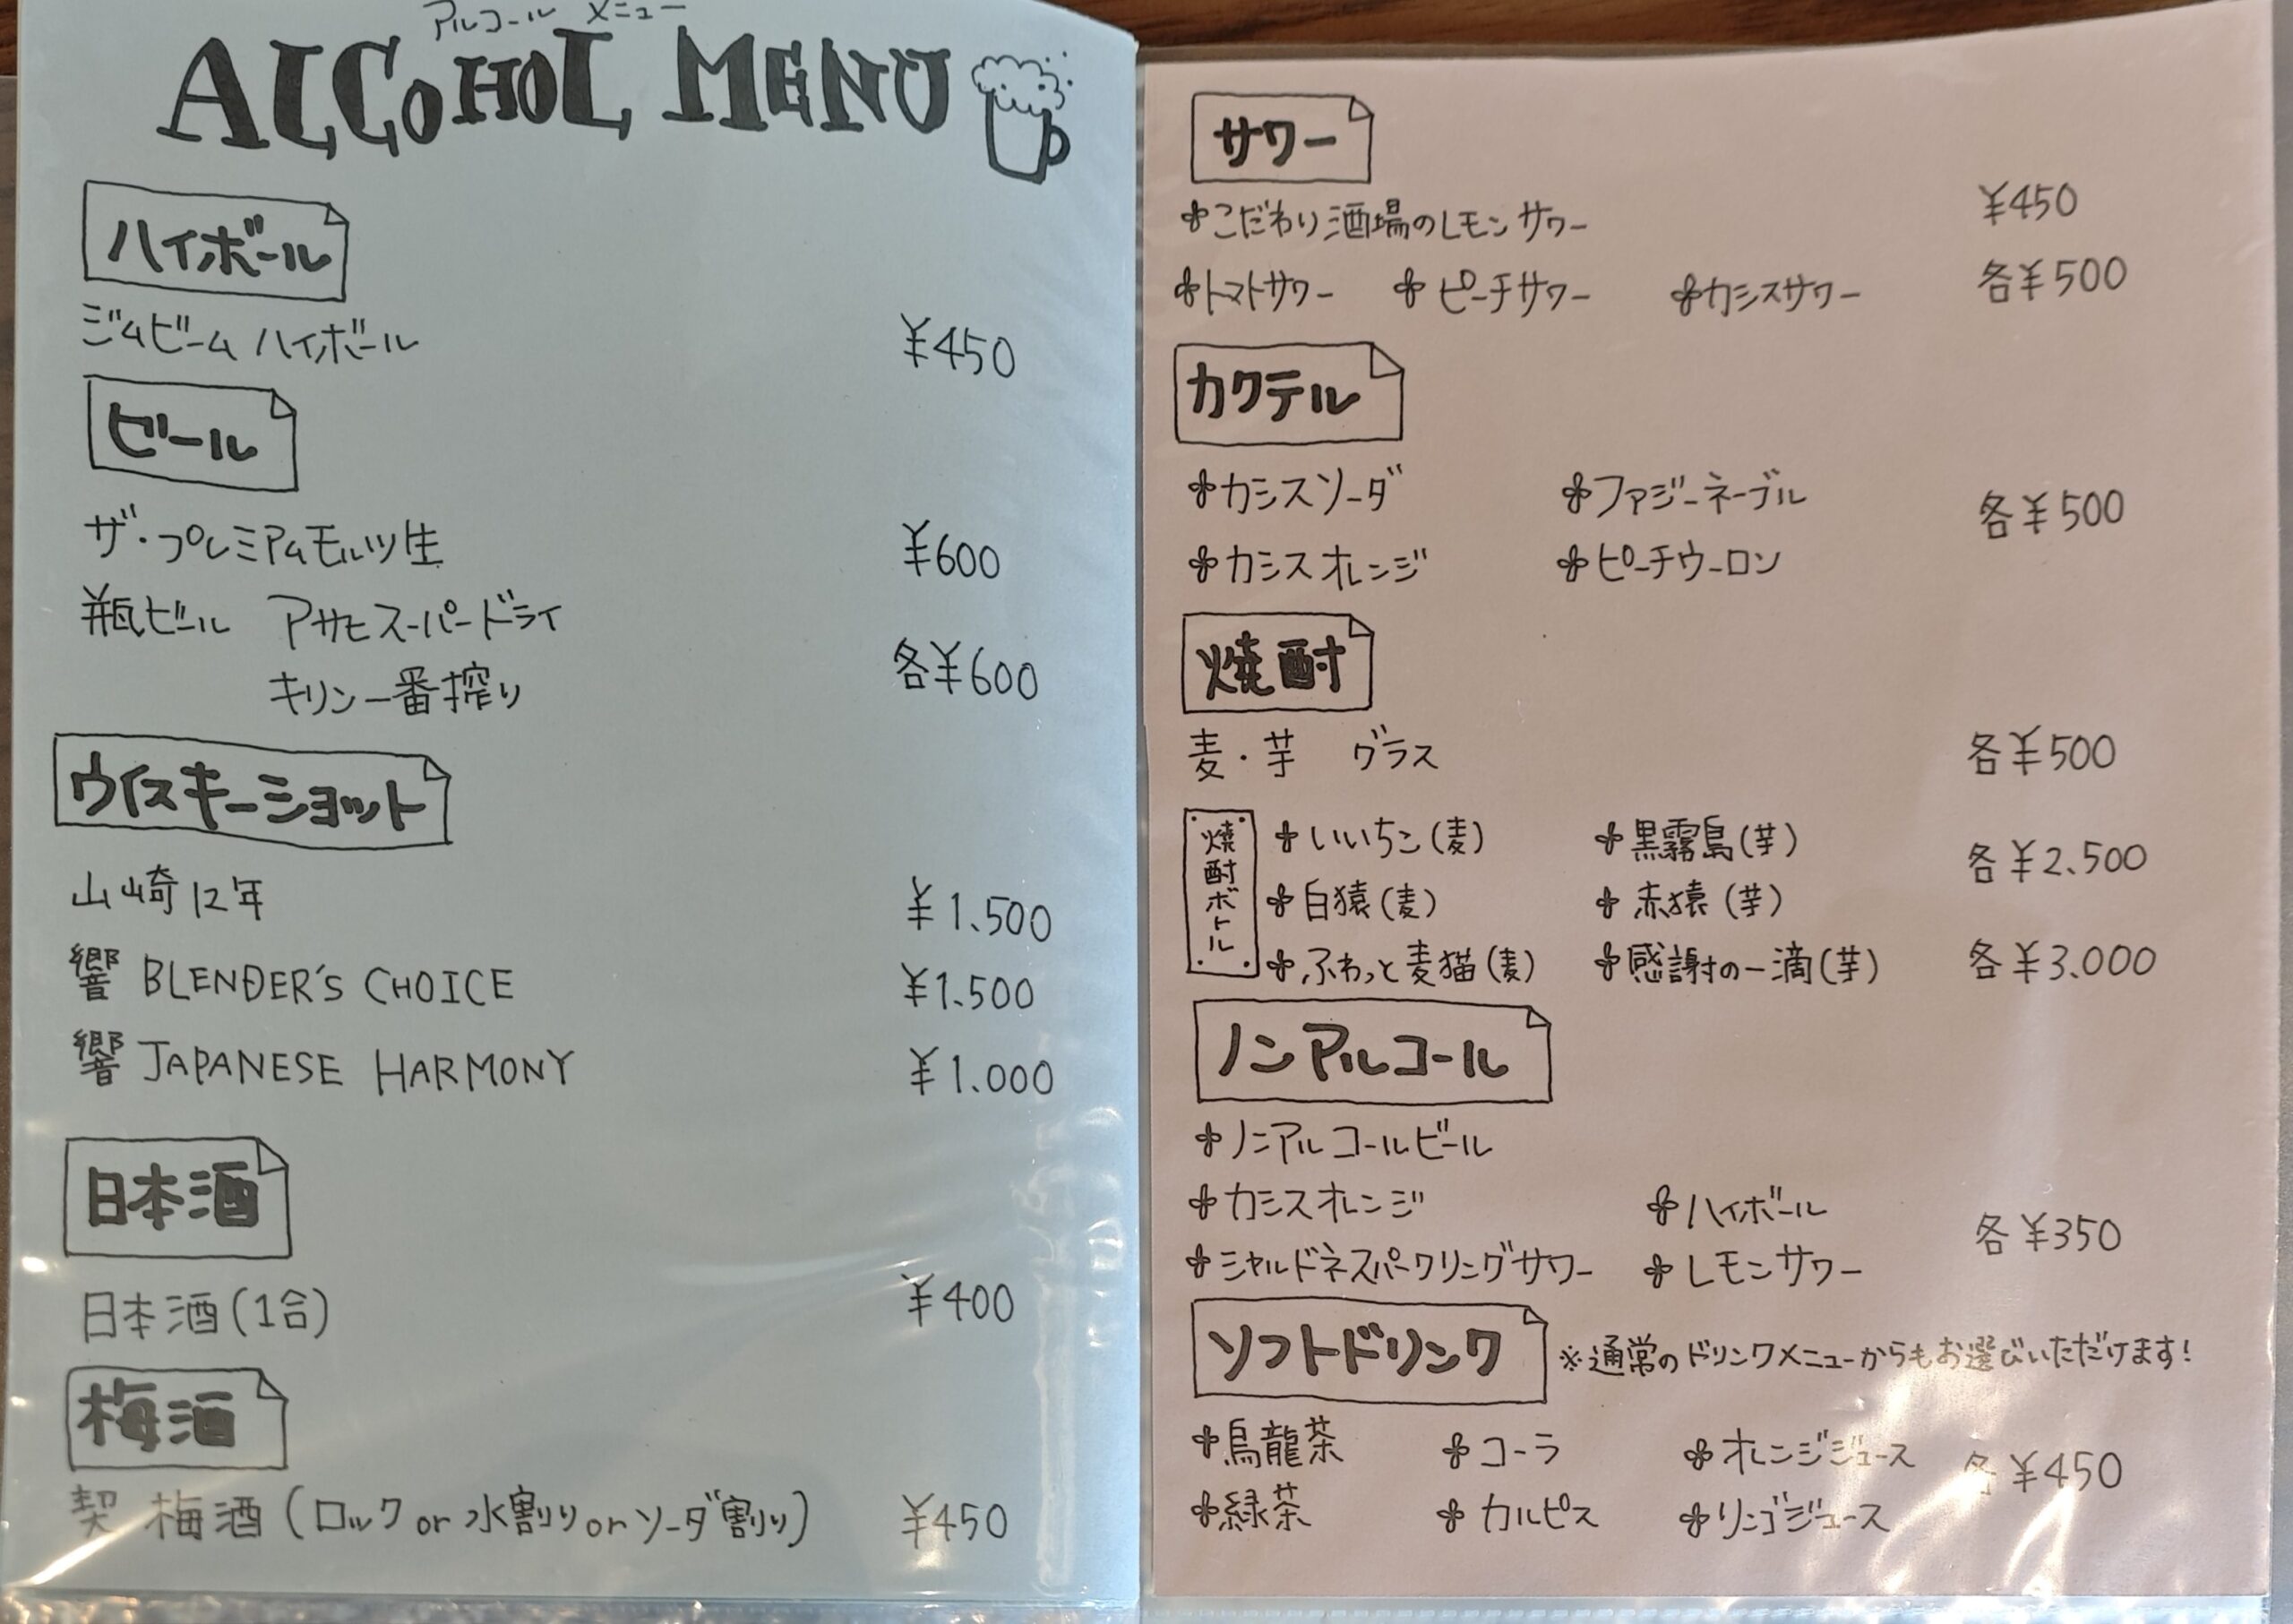 アルコール メニュー
ALCOHOL MENU
ハイボール
ジムビーム ハイボール ¥450
ビール
ザ・プレミアムモルツ生 ¥600
瓶ビール アサヒスーパードライ
キリン一番搾り 各¥600
ウイスキーショット
山崎12年 ¥1.500
響 BLENDER'S CHOICE ¥1.500
響 JAPANESE HARMONY ¥1.000
日本酒
日本酒(1合) ¥400
梅酒
契 梅酒(ロック or 水割り or ソーダ割り) ¥450
サワー
こだわり酒場のレモンサワー ¥450
トマトサワー ピーチサワー カシスサワー 各¥500
カクテル
カシスソーダ ファジーネーブル 各¥500
カシスオレンジ ピーチウーロン
焼酎
麦・芋 グラス 各¥500
焼酎ボトル
いいちこ(麦) 黒霧島(芋) 各¥2.500
白猿(麦) 赤猿(芋)
ふわっと麦猫(麦) 感謝の一滴(芋) 各¥3.000
ノンアルコール
ノンアルコールビール
カシスオレンジ ハイボール 各¥350
シャルドネスパークリングサワー レモンサワー
ソフトドリンク ※通常のドリンクメニューからもお選びいただけます!
烏龍茶 コーラ オレンジジュース 各¥450
緑茶 カルピス リンゴジュース